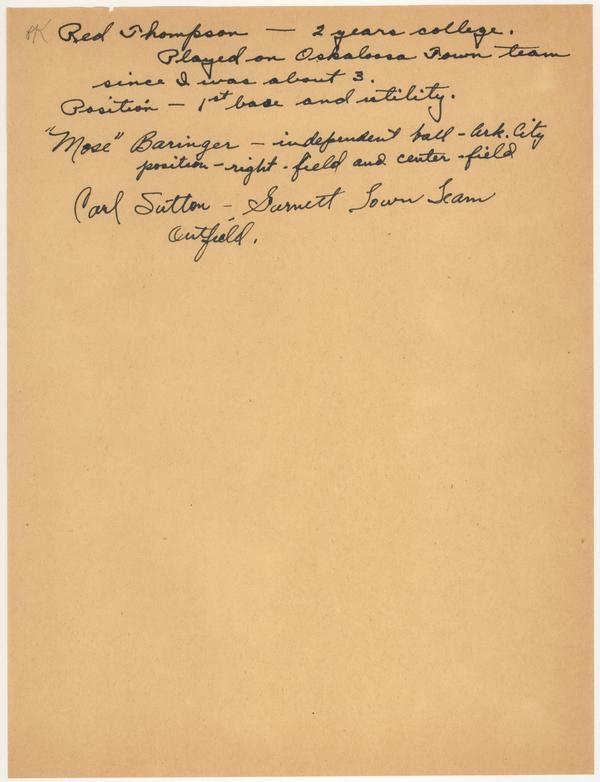 OK Red Thompson — 2 years college.
Played on Oskaloosa Town team
since I was about 3.
Position — 1st base and utility.
"Mose" Baringer — independent ball - Ark. City
position - right - field and center - field
Carl Sutton - Garnett Town Team
Outfield.